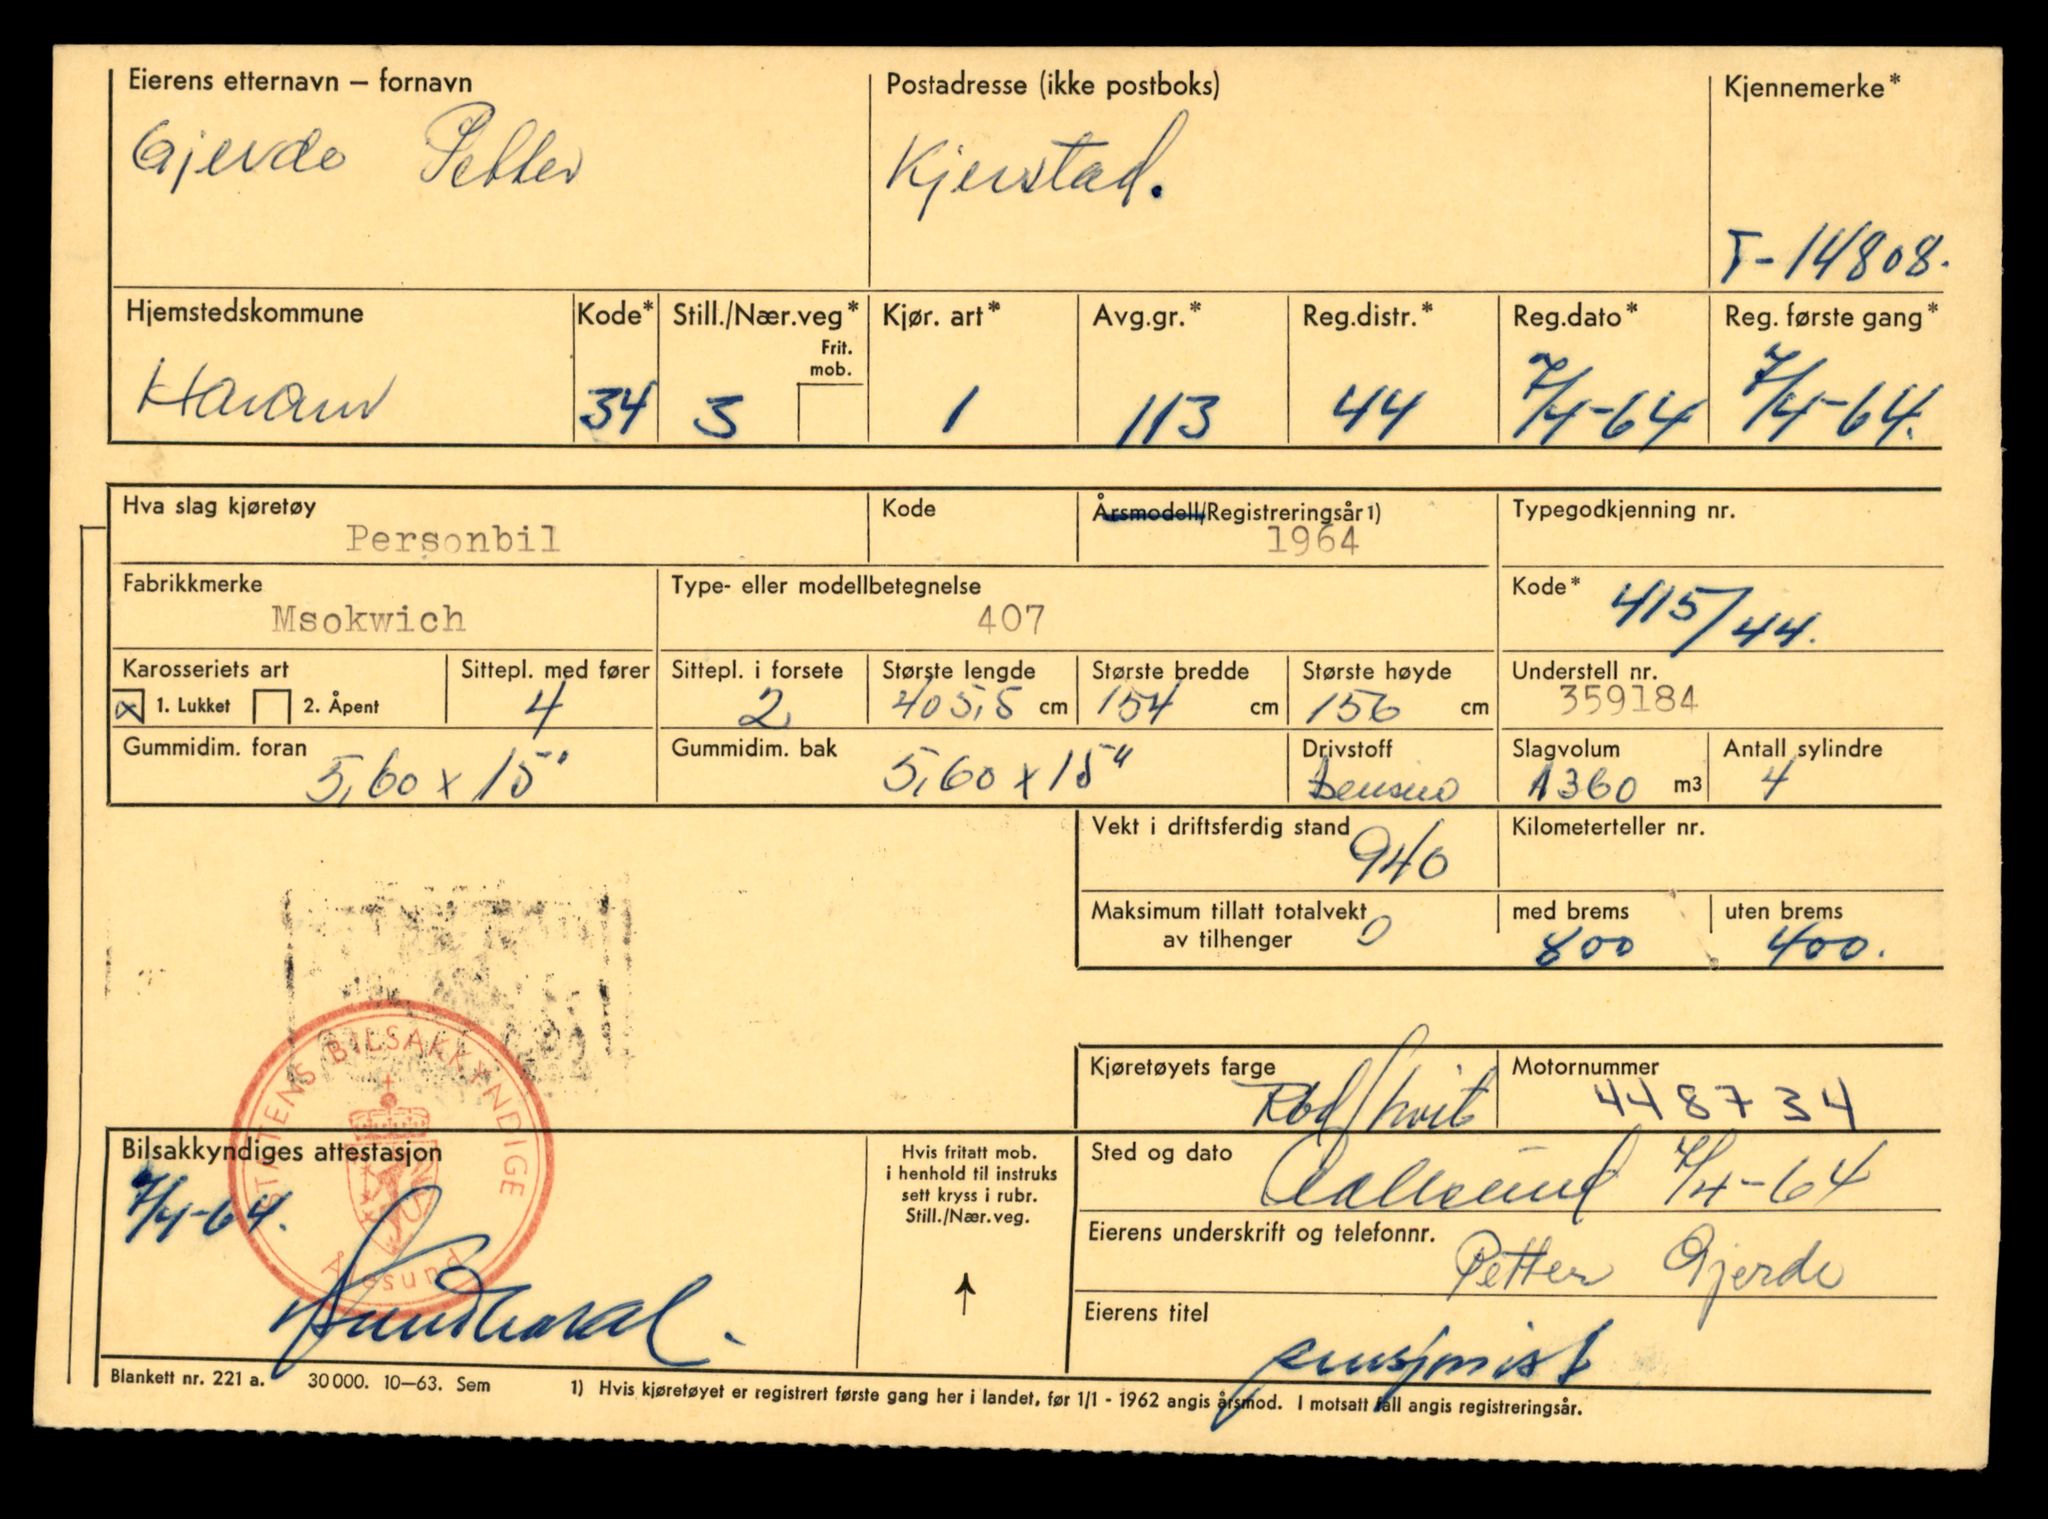 Eierens etternavn – fornavn
Gjerde Petter
Postadresse (ikke postboks)
Kjerstad.
Kjennemerke*
T-14808.
Hjemstedskommune
Haram
Kode*
34
Still./Nær.veg*
Frit. mob.
3
Kjør. art*
1
Avg.gr.*
113
Reg.distr.*
44
Reg.dato*
7/4-64
Reg. første gang*
7/4-64.
Hva slag kjøretøy
Personbil
Kode
Årsmodell/Registreringsår 1)
1964
Typegodkjenning nr.
Fabrikkmerke
Msokwich
Type- eller modellbetegnelse
407
Kode*
415/44.
Karosseriets art
1. Lukket 2. Åpent
Sittepl. med fører
4
Sittepl. i forsete
2
Største lengde
405,5 cm
Største bredde
154 cm
Største høyde
156 cm
Understell nr.
359184
Gummidim. foran
5,60 x 15"
Gummidim. bak
5,60 x 15"
Drivstoff
bensin
Slagvolum
1360 m3
Antall sylindre
4
Vekt i driftsferdig stand
940
Kilometerteller nr.
Maksimum tillatt totalvekt
av tilhenger
0
med brems
800
uten brems
400.
Kjøretøyets farge
Rød/hvit
Motornummer
448734
STATENS BILSAKKYNDIGE
Ålesund
Bilsakkyndiges attestasjon
7/4-64.
Hvis fritatt mob.
i henhold til instruks
sett kryss i rubr.
Still./Nær.veg.
Sted og dato
Aalesund 7/4-64
Eierens underskrift og telefonnr.
Petter Gjerde
Eierens titel
pensjonist
Blankett nr. 221 a. 30 000. 10–63. Sem
1) Hvis kjøretøyet er registrert første gang her i landet, før 1/1 - 1962 angis årsmod. I motsatt fall angis registreringsår.